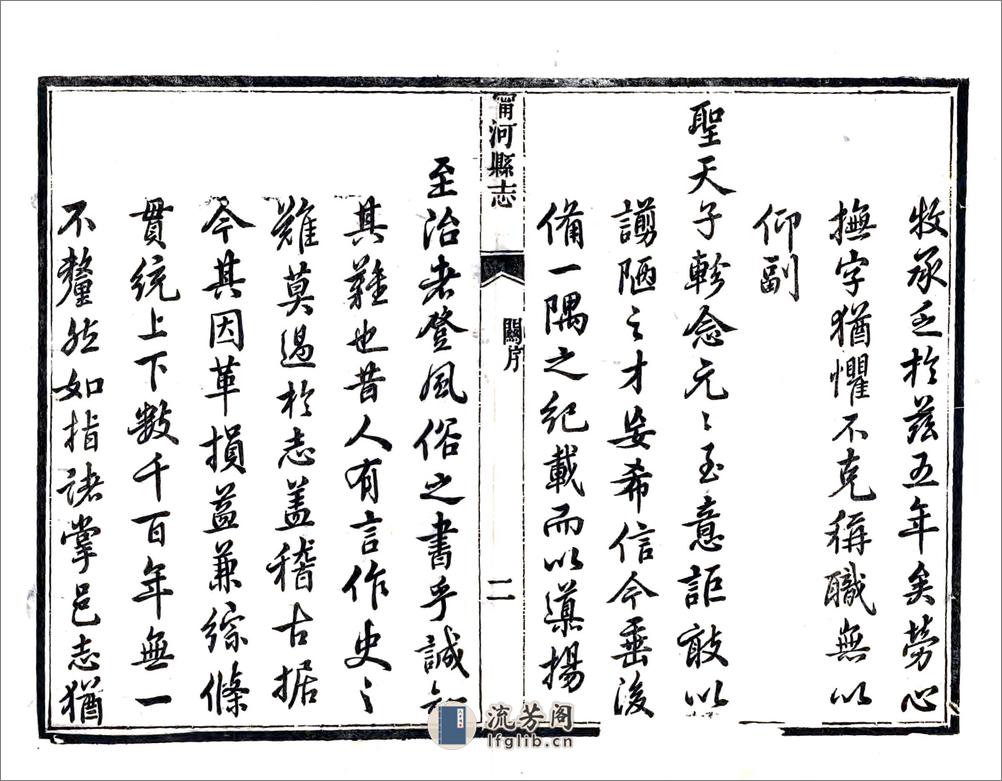 牧承乏於茲五年矣勞心
撫字猶懼不克稱職無以
仰副
聖天子軫念元〻至意詎敢以
謭陋之才妄希信今垂後
備一隅之紀載而以導揚
甯河縣志
關序
二
至治者登風俗之書乎誠知
其難也昔人有言作史之
難莫過於志蓋稽古据
今其因革損益兼綜條
貫統上下數千百年無一
不犛然如指諸掌邑志猶
流芳阁
lfglib.cn